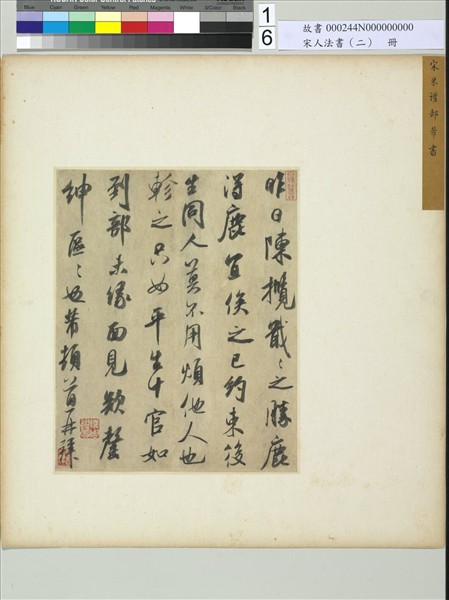 Blue Cyan Green Yellow Red Magenta White 3/Color Black
1
6
故書 000244N000000000
宋人法書（二） 冊
宋米禮部芾書
昨日陳攬戢〻之勝鹿
得鹿宜俟之已約束後
生同人莫不用煩他人也
軫之只如平生十官如
到部未緣面見欵罄
紳區〻也芾頓首再拜